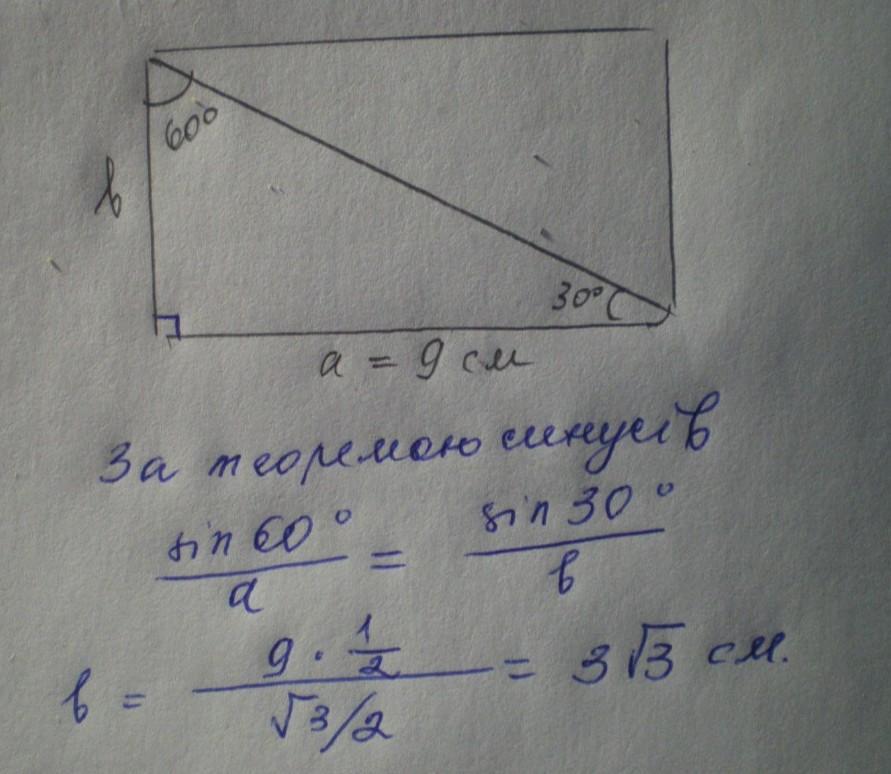 60°
в
30°
a = 9 см
За теоремою синусів
sin 60° / a = sin 30° / в
в = 9 · 1/2 / √3/2 = 3√3 см.